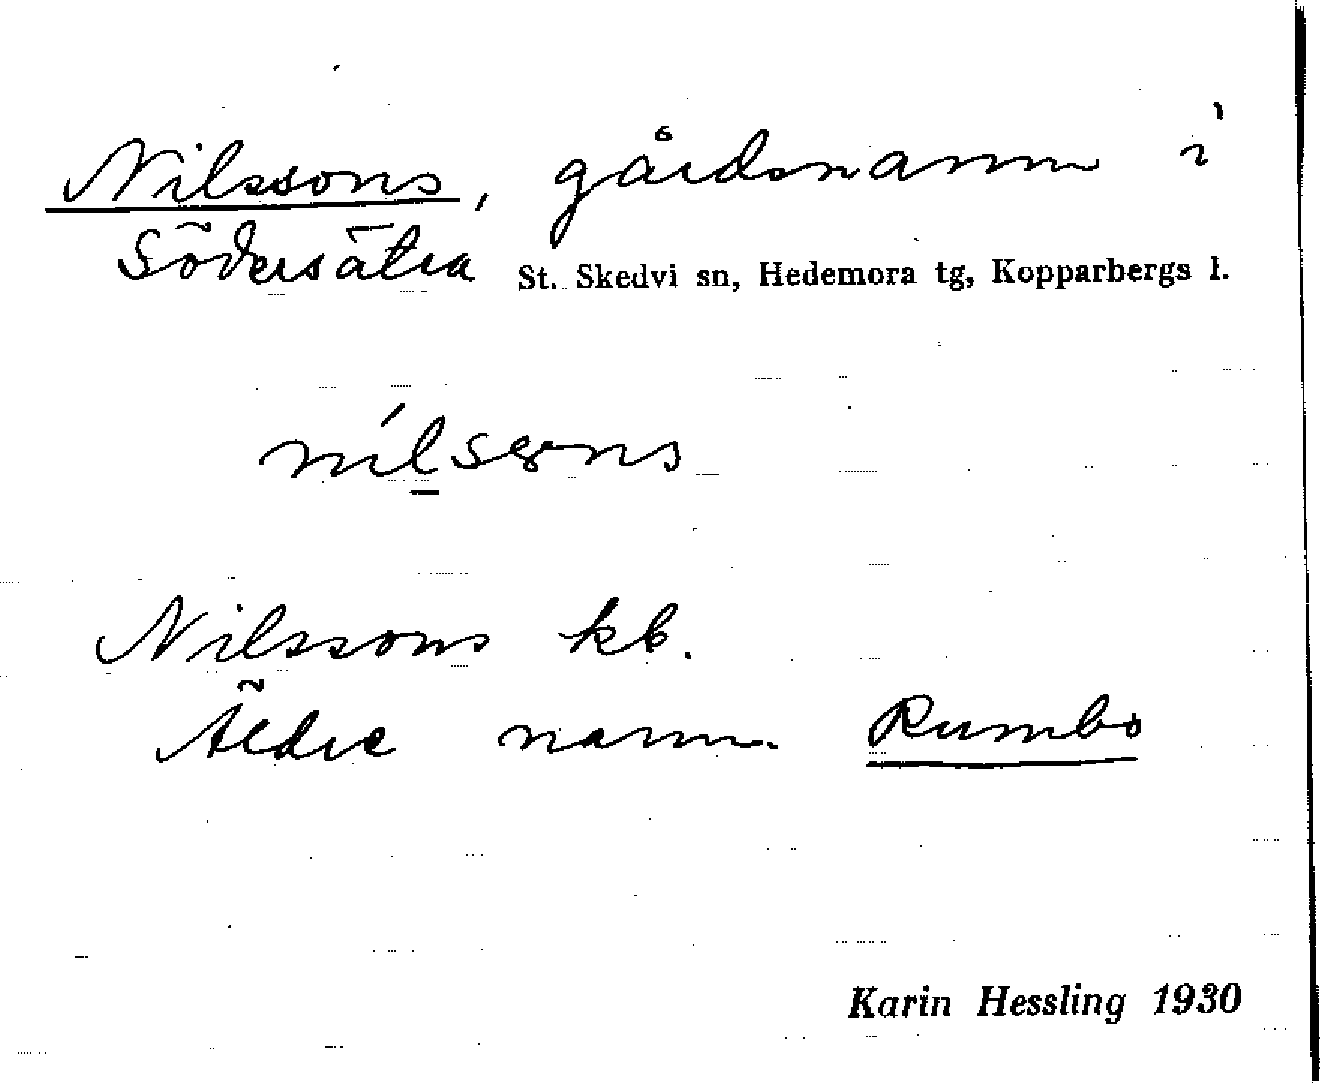 Nilssons, gårdsnamn i
Södersätra St. Skedvi sn, Hedemora tg, Kopparbergs l.
nílsons
Nilssons kb.
Äldre namn Rumbo
Karin Hessling 1930